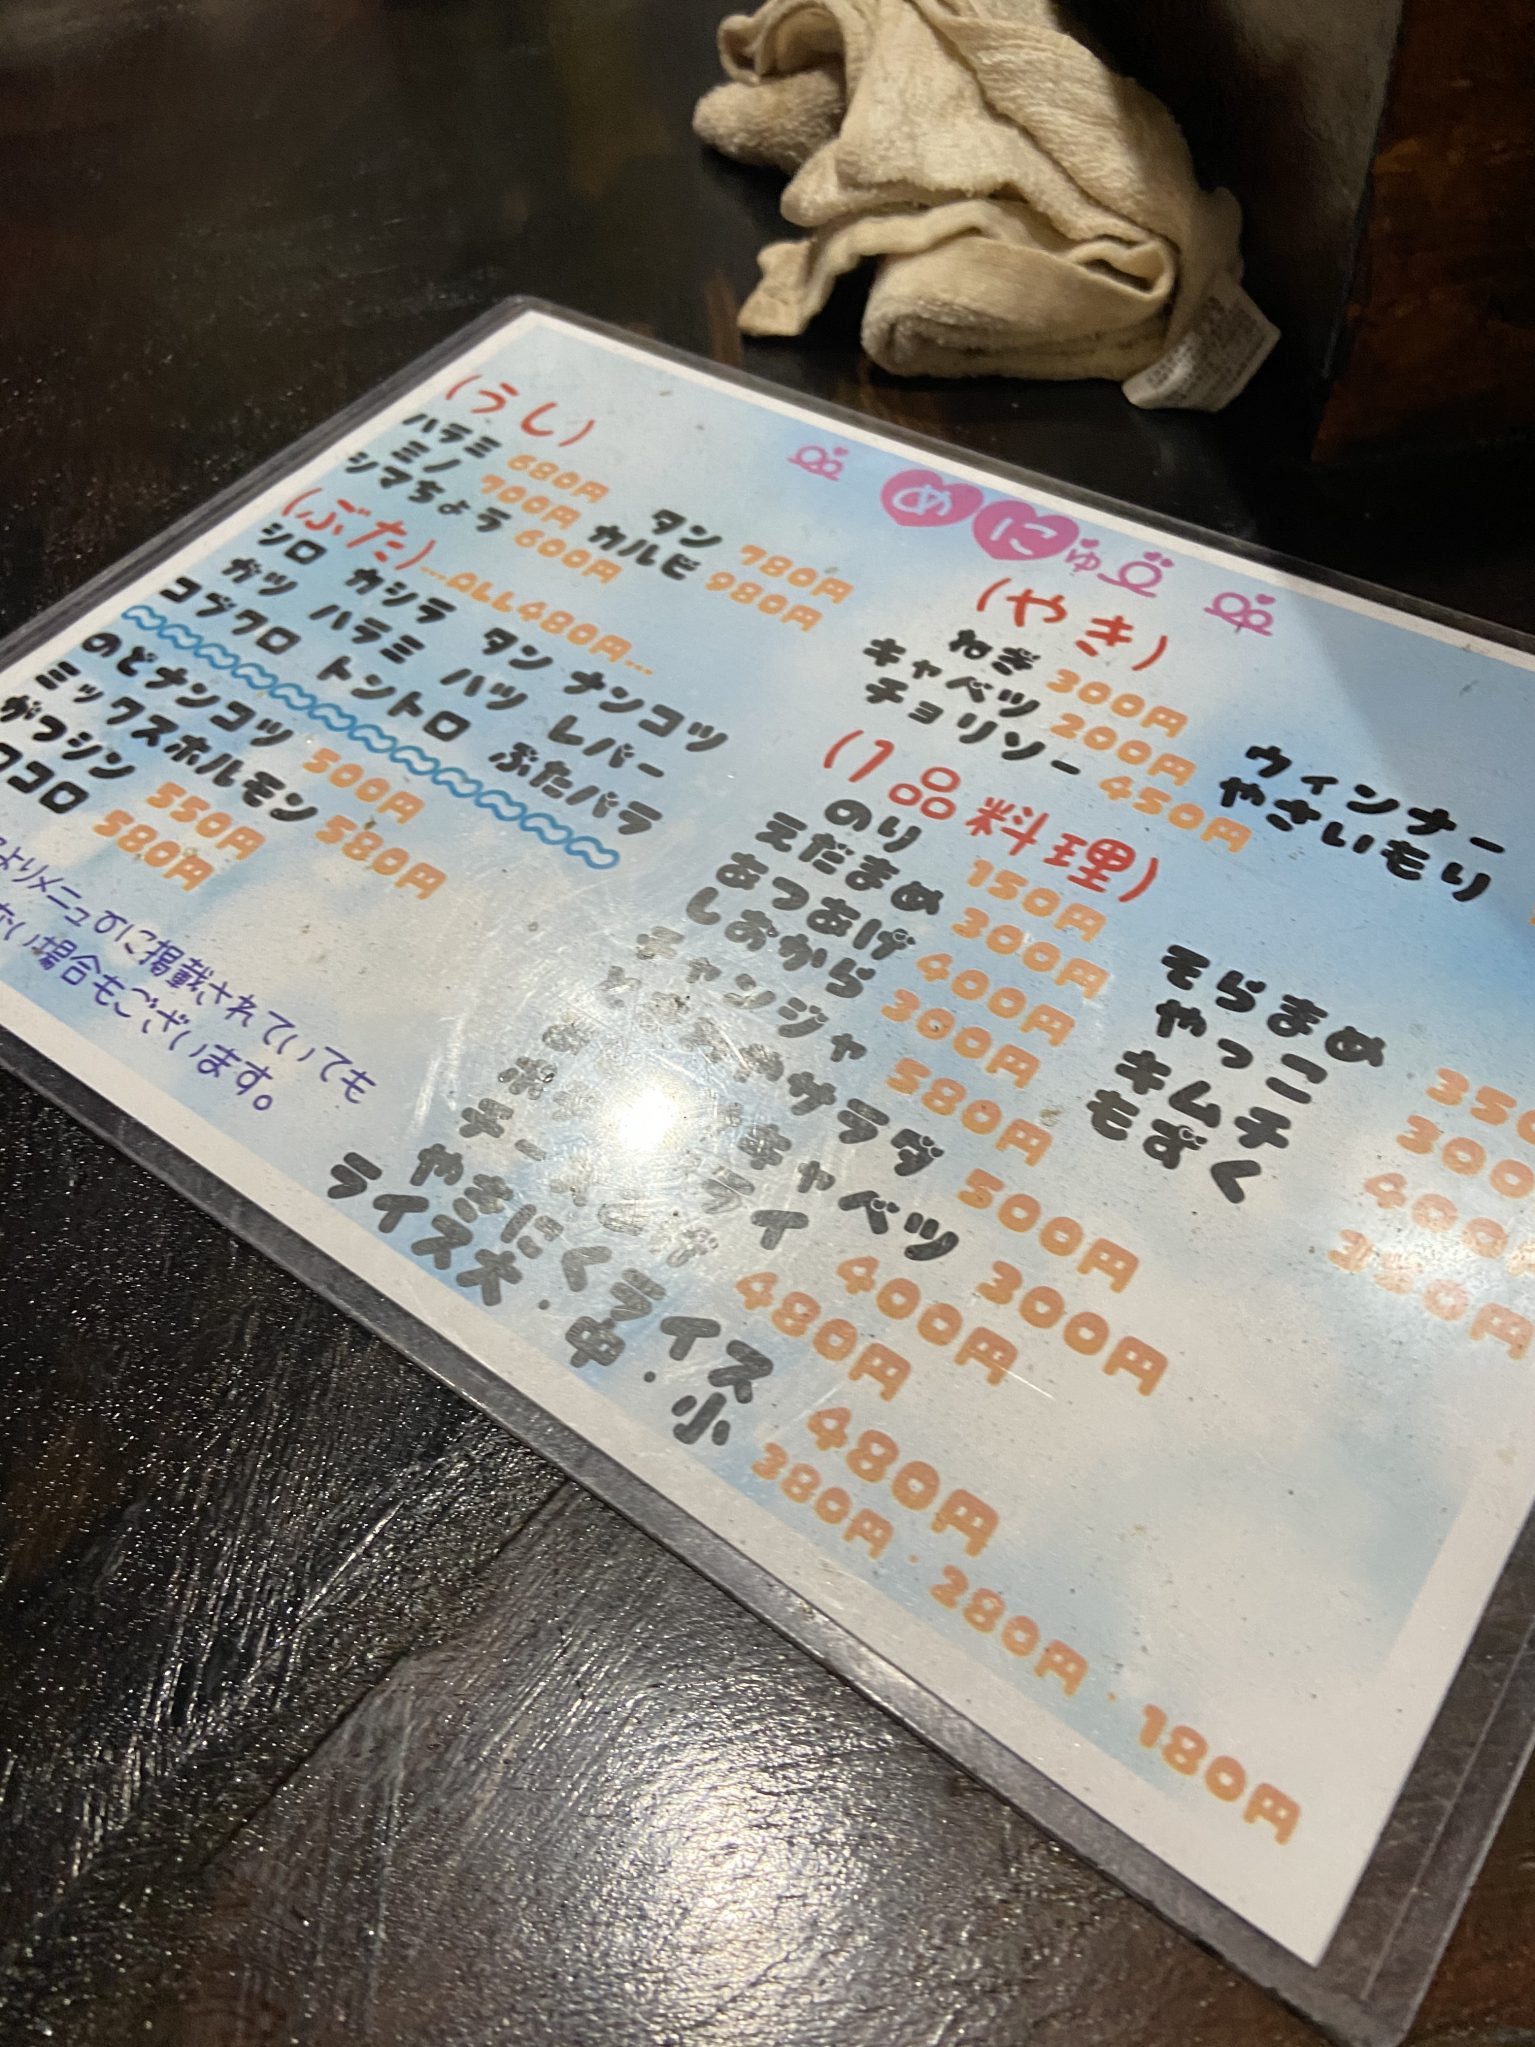 めにゅ
(うし)
ハラミ 680円 タン 780円
ミノ 700円 カルビ 980円
シマちょう 600円
(ぶた)...ALL480円...
シロ カシラ タン ナンコツ
ガツ ハラミ ハツ レバー
コブクロ トントロ ぶたバラ
のどナンコツ 500円
ミックスホルモン 580円
がつシン 550円
ココロ 580円
よりメニューに掲載されていても
ない場合もございます。
(やき)
ねぎ 300円 ウィンナー
キャベツ 200円 やさいもり
チョリソー 450円
(1品料理)
のり 150円 そらまめ 350
えだまめ 300円 やっこ 300
あつあげ 400円 キムチ 400円
しおから 300円 もずく 350円
チャンジャ 580円
サラダ 500円
キャベツ 300円
フライ 400円
チーズ 480円
やきにくライス 480円
ライス大・中・小 380円・280円・180円